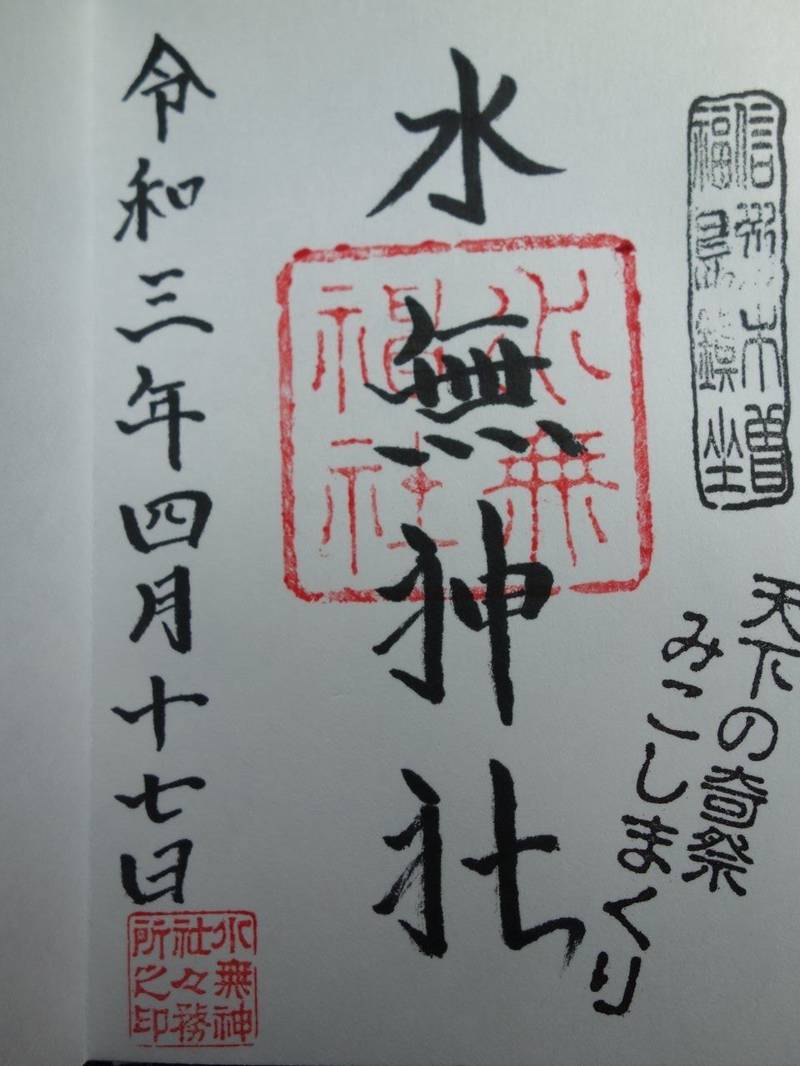 信州木曽
福島鎮坐
天下の奇祭
みこしまくり
水無神社
水無
神社
令和三年四月十七日
水無神
社々務
所之印